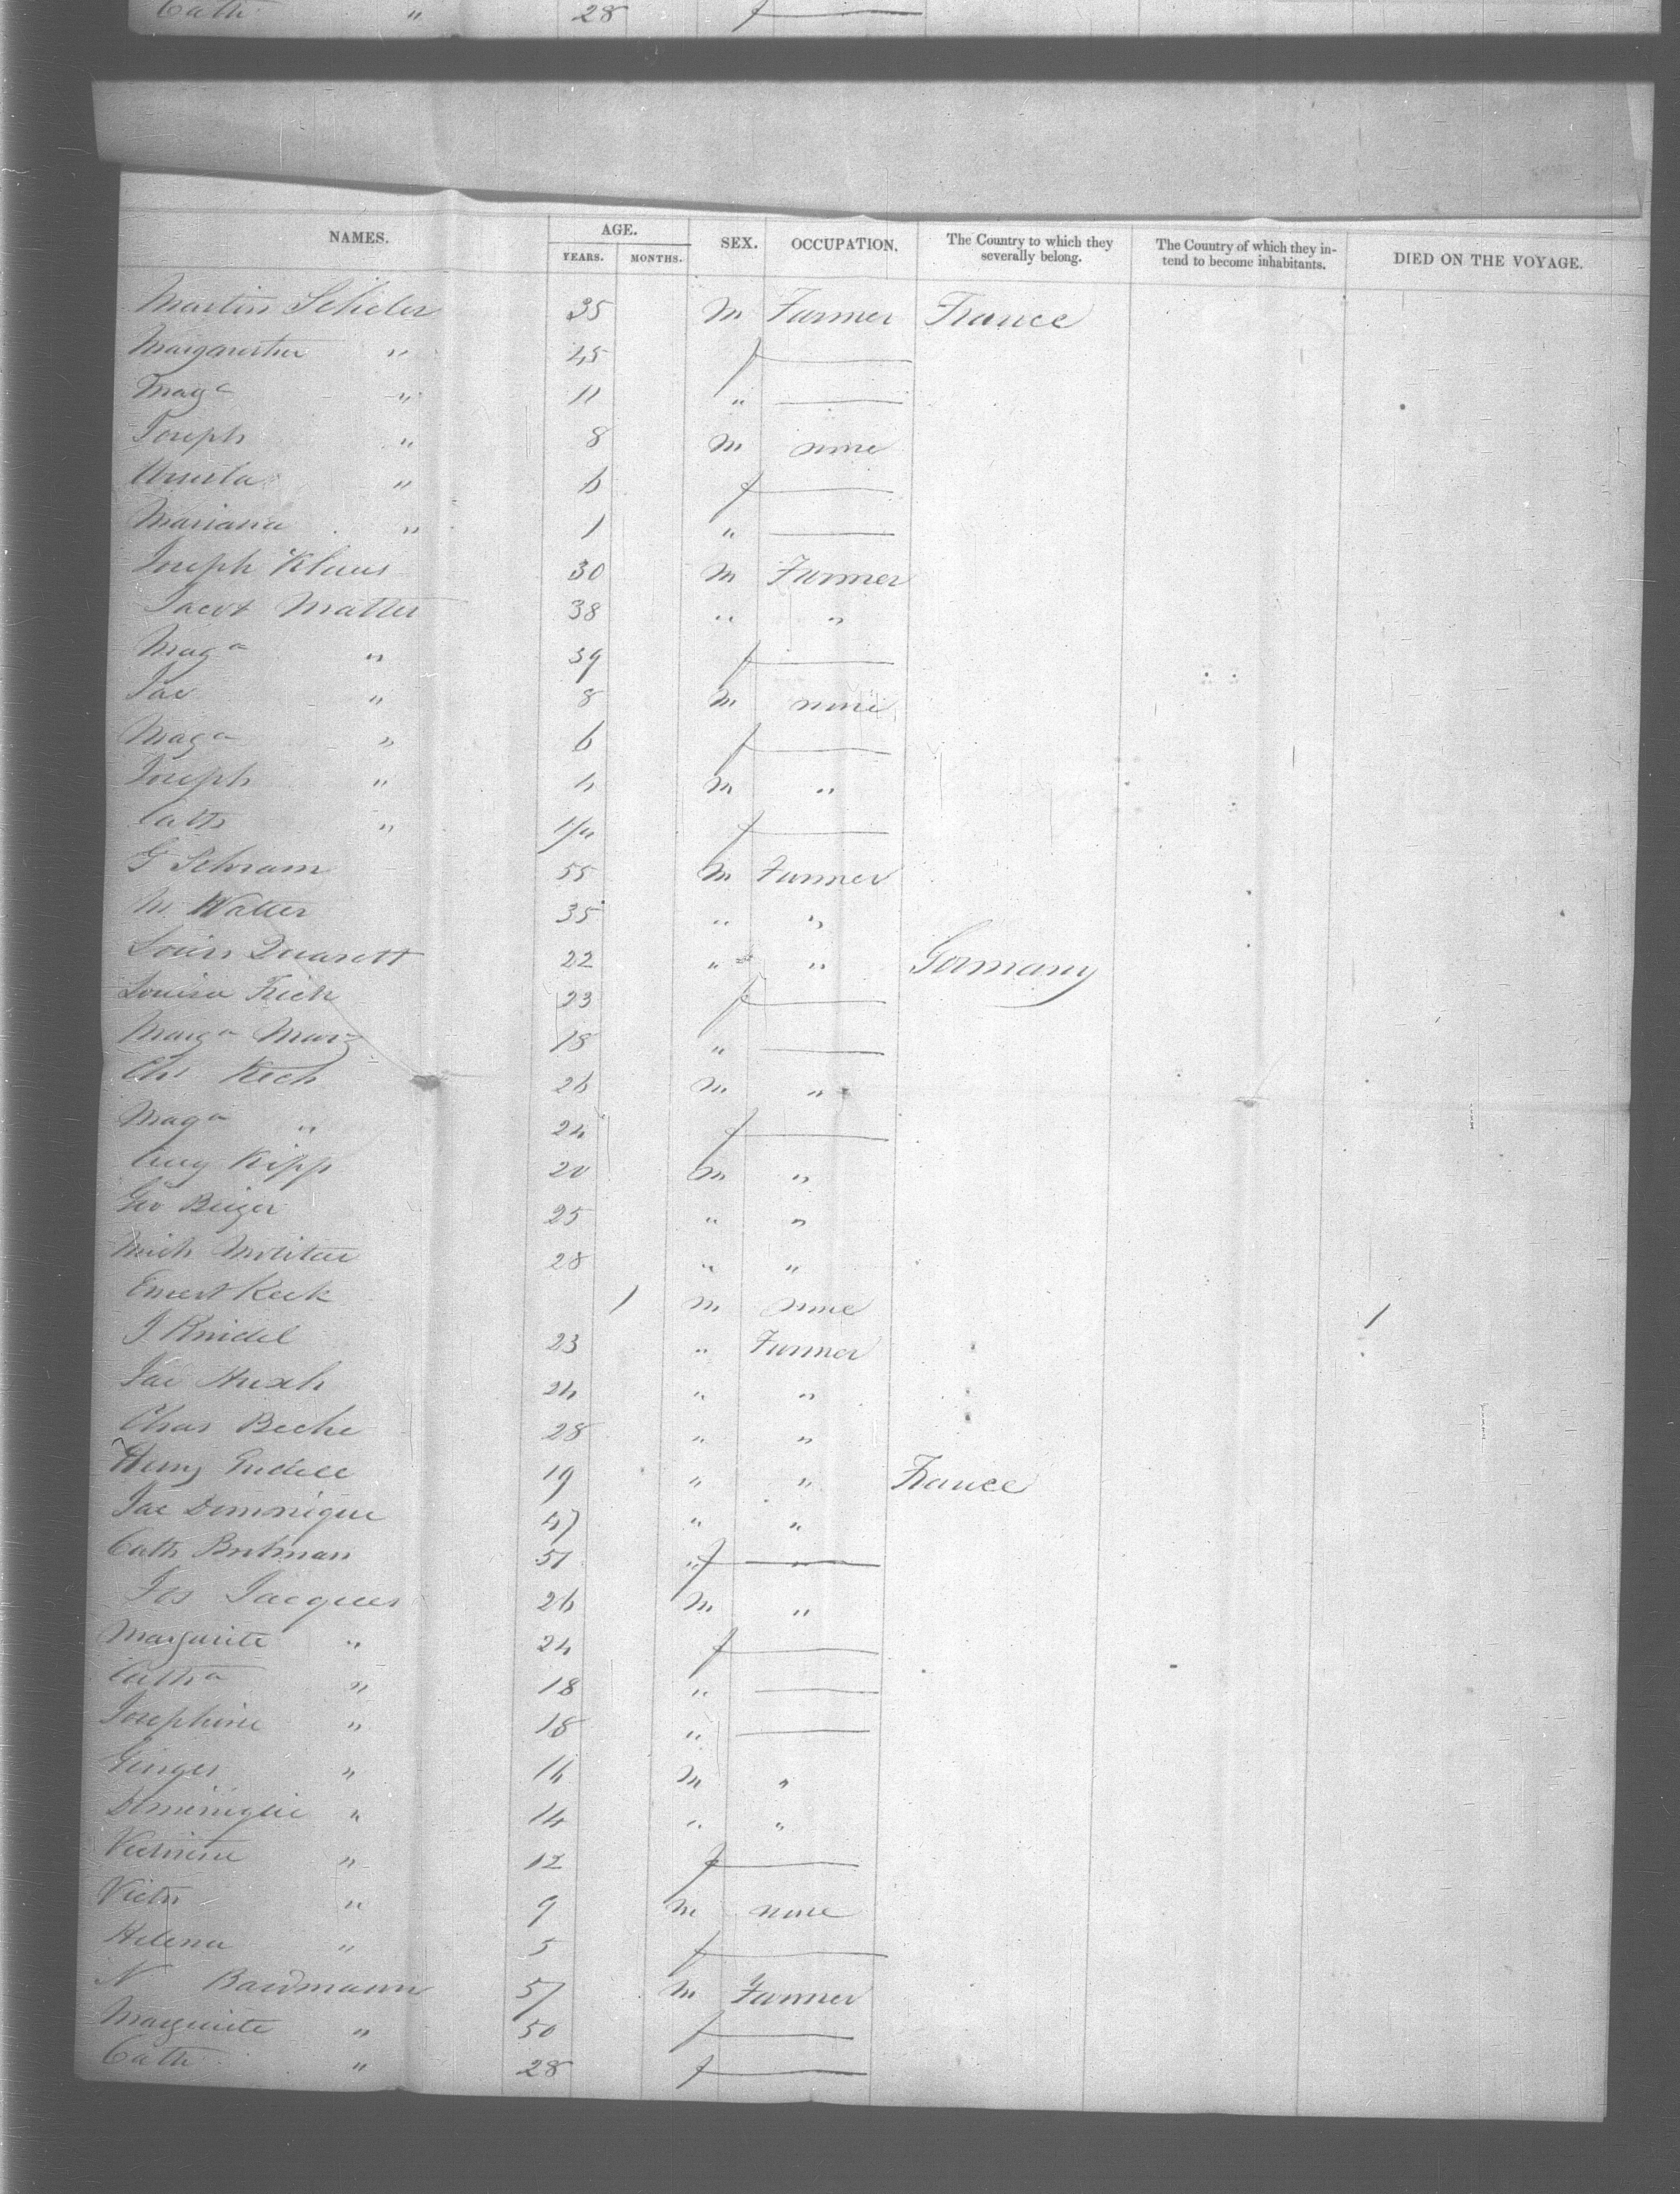 Cath " 28 f
NAMES. AGE. YEARS. MONTHS. SEX. OCCUPATION. The Country to which they severally belong. The Country of which they intend to become inhabitants. DIED ON THE VOYAGE.
Martin Scheler 35 m Farmer France
" 45 f
Maga " 11 "
Joseph " 8 m none
Ursula " 6 f
Mariana " 1 "
Joseph Klaus 30 m Farmer
Jacob Matter 38 " "
Maga " 39 f
Jac " 8 m none
Maga " 6 f
Joseph " 4 m "
Cath " f
G Schram 55 m Farmer
M Walter 35 " "
Louis 22 " " Germany
Louisa Frick 23 f
Marga Marz 18 "
Chs Keck 26 m "
Maga " 24 f
Aug Kipp 20 m "
Geo Beiger 25 " "
Mich Molitar 28 " "
Ernest Keck 1 m none 1
J 23 " Farmer
Jac 24 " "
Chas Beche 28 " "
Henry 19 " " France
Jac Dominique 47 " "
Cath 51 f
Jos Jacques 26 m "
Margarite " 24 f
Catha " 18 "
Josephine " 18 "
" 16 m "
Dominique " 14 " "
" 12 f
Victor " 9 m none
Helena " 5 f
N Bardmann 57 m Farmer
Marguerite " 50 f
Cath " 28 f